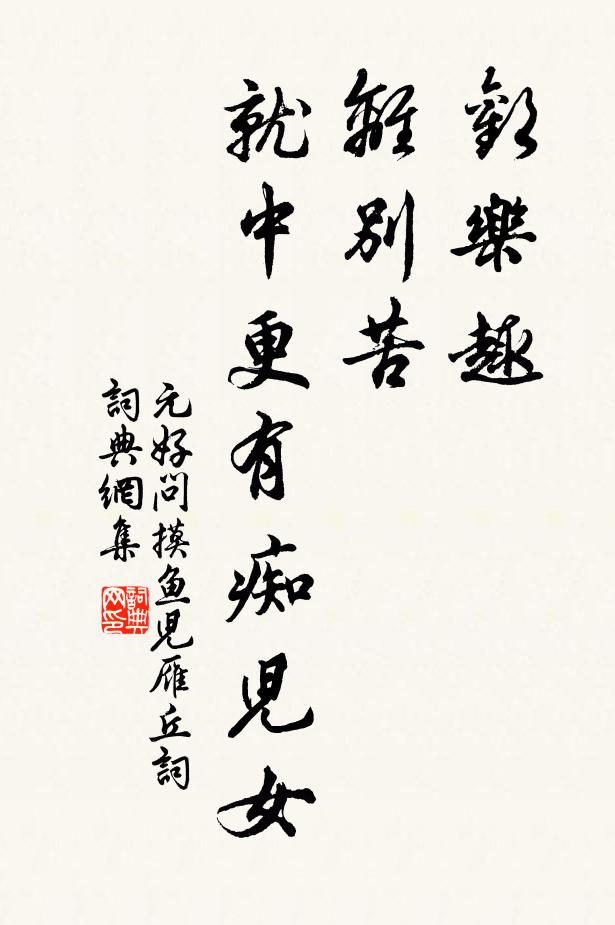 歡樂趣
離別苦
就中更有痴兒女
元好问摸鱼児雁丘詞
詞典網集
詞典网印